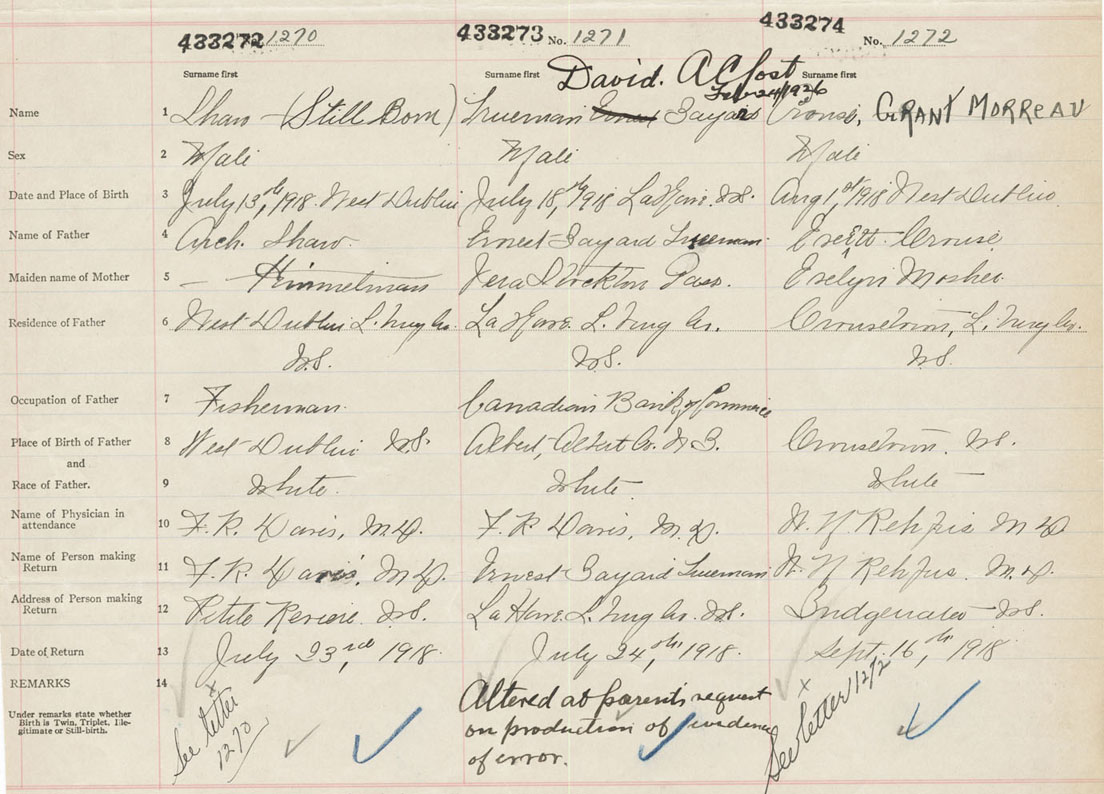 433272 No. 1270 433273 No. 1271 433274 No. 1272
Surname first Surname first David. A C Jost Surname first
Feb 24/1926
Name 1 Shaw - (Still Born) Trueman Ernest Bayard Crouse, GRANT MORREAU
Sex 2 Male Male Male
Date and Place of Birth 3 July 13th, 1918. West Dublin July 18th, 1918 LaHave. N.S. Aug 1st, 1918 West Dublin
Name of Father 4 Arch. Shaw. Ernest Bayard Trueman. Evett Crouse
Maiden name of Mother 5 - Himmelman Vera Stockton Evelyn Mosher
Residence of Father 6 West Dublin L. Burg Co. LaHave. L. Burg Co. Crousetown, L. Burg Co.
N.S. N.S. N.S.
Occupation of Father 7 Fisherman. Canadian Bank of Commerce
Place of Birth of Father 8 West Dublin N.S. Albert, Albert Co. N.B. Crousetown. N.S.
and
Race of Father. 9 White. White. White
Name of Physician in
attendance 10 F. R. Davis, M.D. F. R. Davis, M.D. Rehfus M D
Name of Person making
Return 11 F. R. Davis, M.D. Ernest Bayard Trueman Rehfus. M.D.
Address of Person making
Return 12 Petite Riviere N.S. LaHave. L. Burg Co. N.S. Bridgewater N.S.
Date of Return 13 July 23rd, 1918. July 24th, 1918. Sept. 16th, 1918
REMARKS 14
Under remarks state whether
Birth is Twin, Triplet, Ille-
gitimate or Still-birth.
x
See letter
1270
Altered at parents request
on production of evidence
of error.
x
See letter 1272